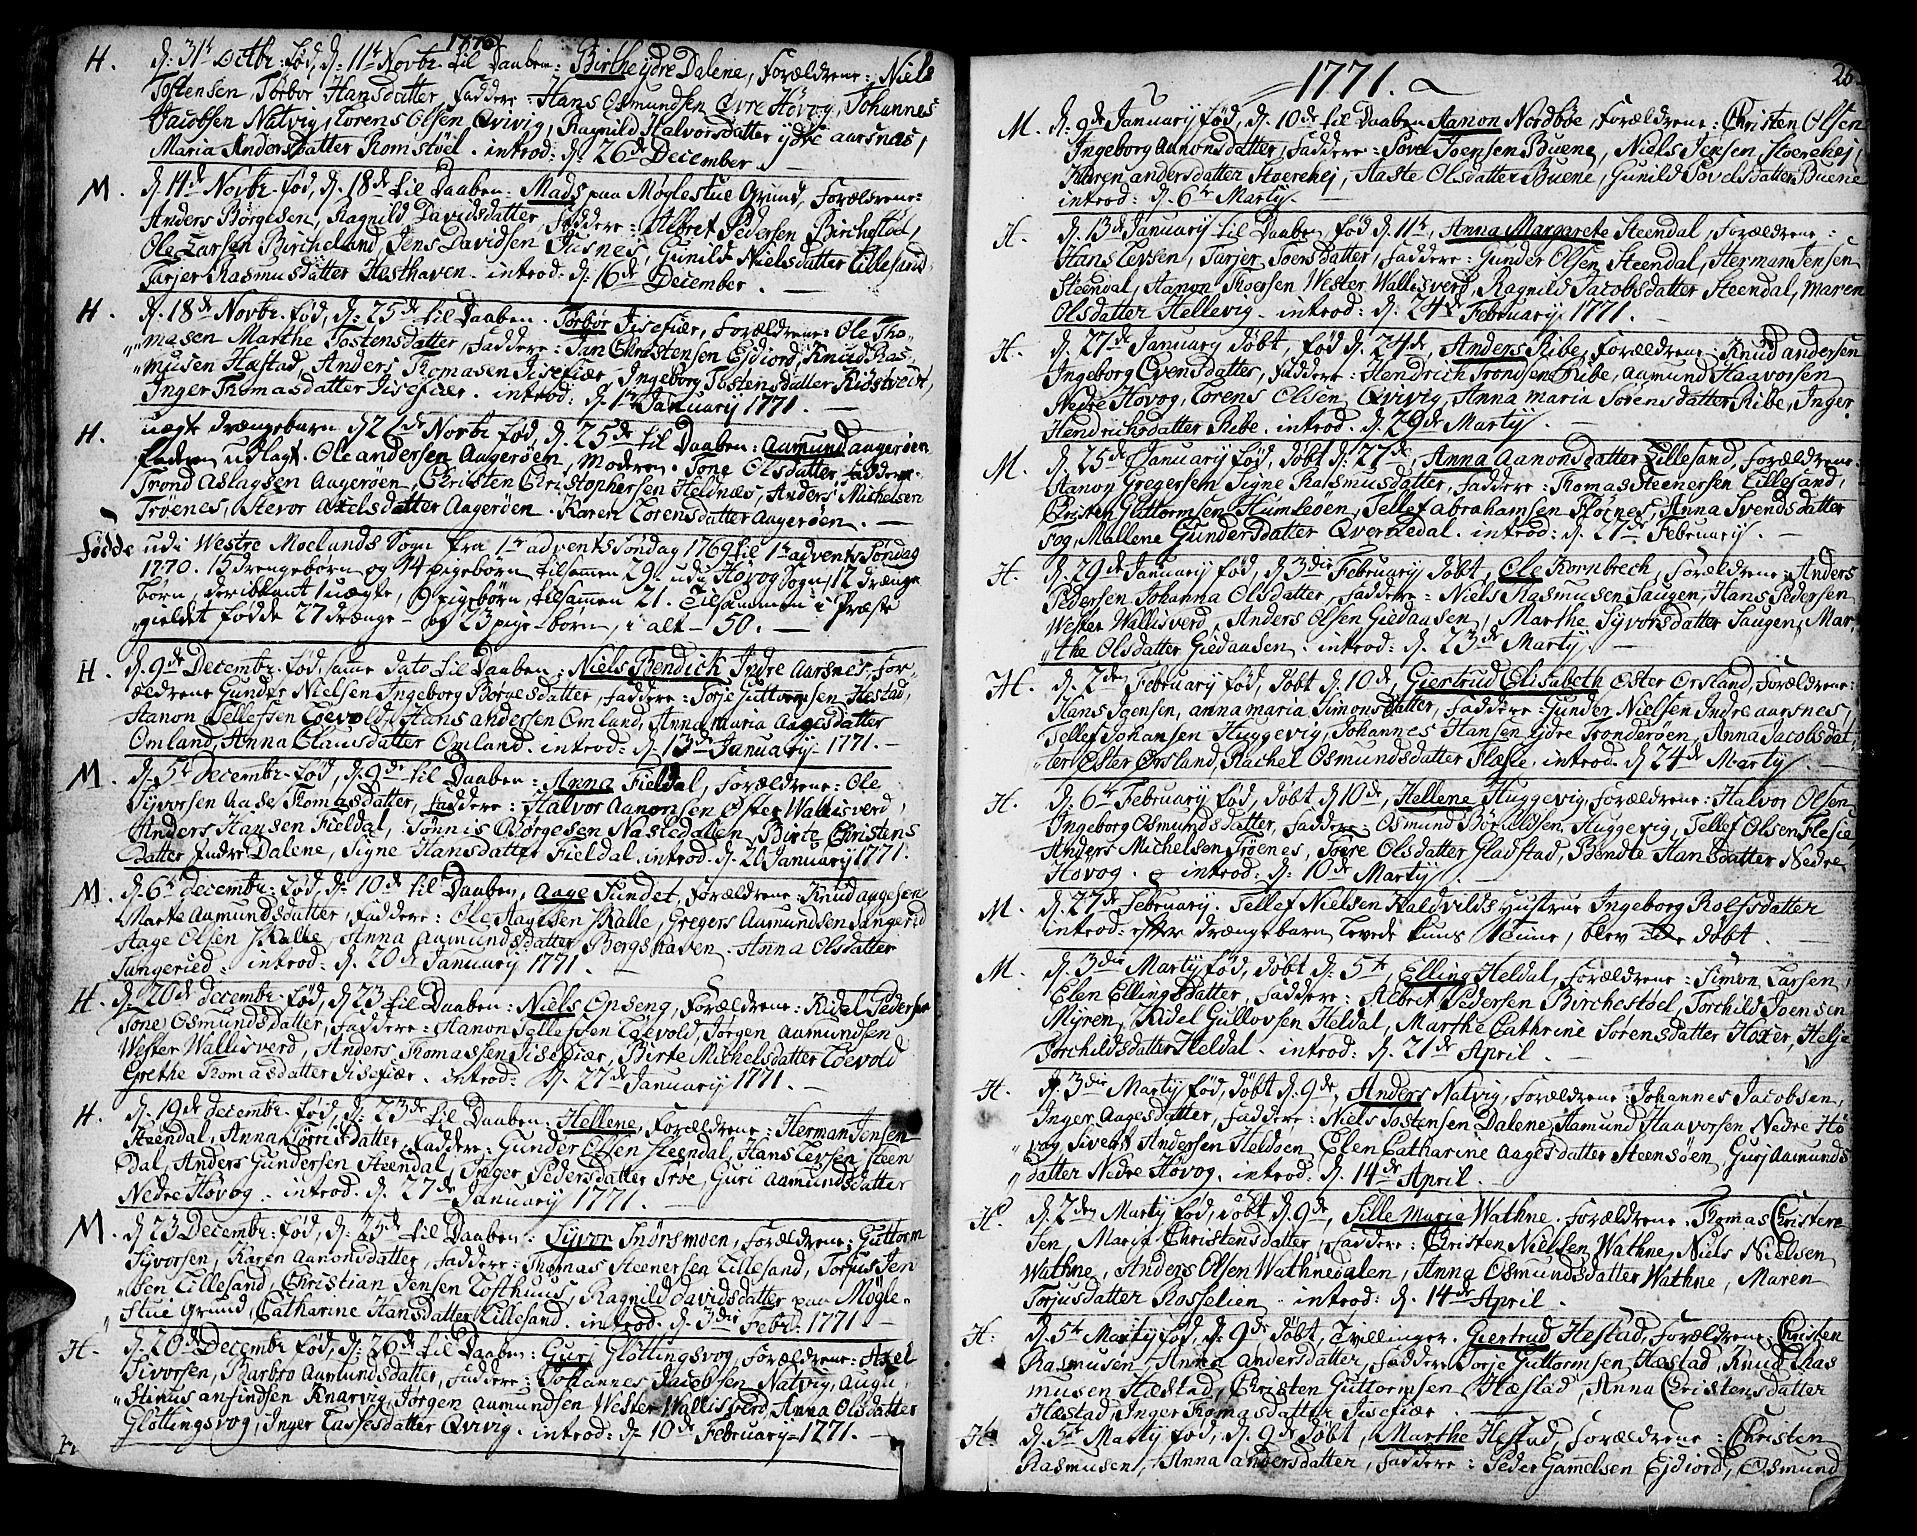 1770
H. d: 31te Octbr. fød, d: 11te Novbr. til Daaben: Birthe ydre Dalene, Forældrene: Niels
Tostensen, Torbor Hansdatter, Faddere: Hans Osmundsen Øvre Høvog, Johannes
Jacobsen Natvig, Lorens Olsen Qvivig, Ragnild Halvorsdatter ydre aarsnas,
Maria Andersdatter Romstøel. introd: d. 26de December.
M. d. 14de Novbr. fød, d. 18de til Daaben: Mads paa Møglestue Grund, Forældrene:
Anders Børgesen, Ragnild Davidsdatter, Faddere: Albret Pedersen Birchestøel,
Ole Larsen Bircheland, Jens Davidsen, Gunild Nielsdatter Lillesand,
Tarjer Rasmusdatter Hesthaven. introd: d: 16de December.
H. d. 18de Novbr. fød, d: 25de til Daaben. Torbor Jisefiær, Forældrene: Ole Tho-
masen Marthe Tostensdatter, Faddere: Jan Christensen Ejdiord, Knud Ras-
musen Hæstad, Anders Thomasen Jisefiær, Ingeborg Tostensdatter Ridstvedt,
Inger Thomasdatter Jisefiær. introd: d. 1te January 1771.
H. uægte drængebarn d 22de Novbr fød, d. 25de til Daaben: Aamund aagerøen
faderen udlagt. Ole andersen Aagerøen, Moderen. Tone Olsdatter, Faddere:
Trond Aslagsen Aagerøen, Christen Christophersen Heldnæs, Anders Michelsen
Trøenes, Stevor Axelsdatter Aagerøen. Karen Lorensdatter Aagerøen.
Fødde udi Westre Moelands Sogn fra 1te advents Søndag 1769 til 1te advents Søndag
1770. 15 drengebørn og 14 pigebørn tilsamen 29. udi Høvog Sogn, 12 drænge
børn, deriblant 1 uægte, 9 pigebørn, tilsammen 21. Tilsammen i Præste
gieldet fødde 27 drænge- og 23 pige-børn, i alt - 50.
H. d. 9de Decembr. fød, samme dato til Daaben: Niels Bendich Indre Aarsnes, For-
ældrene Gunder Nielsen Ingeborg Børgesdatter, Faddere: Torje Guttormsen Hestad,
Aanon Tellefsen Loevold, Hans andersen Omland, Anna Maria Aagesdatter
Omland, Anna Clausdatter Omland. introd: d. 13de January 1771.
M. d. 5te Decembr. fød, d. 9de til Daaben: Anna Fieldal, Forældrene: Ole
Syvorsen Aase Thomasdatter, Faddere: Halvor Aanonsen Øster Wallisverd,
Anders Hansen Fieldal, Tønnis Børgesen Nastedallen, Birte Christens
Datter Indre Dalene, Signe Hansdatter Fieldal. introd. d. 20 January 1771.
M. d. 6te decembr. fød, d: 10de til Daaben, Aage Sundet, Forældrene: Knud aagesen
Marte Aamundsdatter, Faddere: Ole Aagesen Kalle, Gregers Aamundsen Tangerid
Aage Olsen Kalle, Anna Aamundsdatter Borgshaven. Anna Olsdatter
Tangeried. introd: d. 20de January 1771.
H. d. 20de decembr. fød, d 23 til Daaben: Niels Opseng, Forældrene: Kidel Pedersen
Tone Osmundsdatter, Faddere: Aanon Tellefsen Loevold, Jørgen Aamundsen
Wester Wallisverd, Anders Thomassen Jisefiær, Birte Michelsdatter Loevold
Grethe Thomasdatter Jisefiær. introd: d. 27de January 1771.
H. d. 19de decembr. fød, d: 23de til Daaben: Hellene, Forældrene: Herman Jensen
Steendal, Anna Torrisdatter, Faddere: Gunder Olsen Steendal, Hans Levsen Steen
dal, Anders Gundersen Steendal, Inger Pedersdatter Trøe, Guri Aamundsdatter
Nedre Høvog. introd. d. 27de January 1771.
M. d 23 Decembr. fød, d: 25de til Daaben: Syvor Snørsmoen, Forældrene: Guttorm
Syvorsen, Karen Aanonsdatter, Faddere: Thomas Steenersen Lillesand, Torjus Jen
sen Lillesand, Christian Jensen Lofthuus, Ragnild davidsdatter paa Møgle-
stue grund, Catharine Hansdatter Lillesand. introd. d. 3die Febr. 1771
H. d. 20de Decembr fød, d: 26de til Daaben: Guri Gløttingsvog, Forældrene: Axel
Sivorsen, Barbro Aamundsdatter, Faddere: Johannes Jacobsen Natvig, Augu
stinus anfindsen Knarvig, Jørgen Aamundsen Wester Wallisverd, Anna Olsdatter
Gløttingsvog, Inger Tassesdatter Qvivig. introd: d. 10de February 1771.
1771.
M. d. 9de January fød, d. 10de til Daaben Aanon Nordbøe, Forældrene: Christen Olsen
Ingeborg Aanonsdatter, Faddere: Sovel Joensen Buene, Niels Jensen Stoerehej,
Karen andersdatter Stoerehej, Aaste Olsdatter Buene, Gunild Sovelsdatter Buene
introd: d. 6te Marty.
H. d. 13de January til Daaben, fød d. 11te, Anna Margarete Steendal, Forældrene:
Hans Levsen, Tarjer Joensdatter, Faddere: Gunder Olsen Steendal, Herman Jensen
Steendal, Aanon Thorsen Wester Wallisverd, Ragnild Jacobsdatter Steendal, Maren
Olsdatter Hellevig. introd: d. 24de February 1771.
H. d. 27de January døbt, fød d. 24de, Anders Ribe, Forældrene: Knud andersen
Ingeborg Evensdatter, Faddere: Hendrich Trondsen Ribe, Aamund Haavorsen
Nedre Høvog, Lorens Olsen Qvivig, Anna Maria Sørensdatter Ribe, Inger
Hendrichsdatter Ribe. introd. d. 29de Marty.
M. d. 25de January fød, døbt d. 27de, Anna Aanonsdatter Lillesand, Forældrene:
Aanon Gregersen Signe Rasmusdatter, Faddere: Thomas Steenersen Lillesand,
Christen Guttormsen Humleøen, Tellef abrahamsen Fløenes, Anna Svendsdatter
sog, Mallene Gundersdatter Qvernedal. introd: d. 27de February.
H. d. 29de January fød, d 3die February døbt, Ole Kornbrech, Forældrene: Anders
Pedersen Johanna Olsdatter, Faddere: Niels Rasmusen Saugen, Hans Pedersen
Wester Wallisverd, Anders Olsen Giedaasen, Marthe Syvorsdatter Saugen, Mar-
the Olsdatter Giedaasen. introd: d. 23de Marty.
H. d. 7de February fød, døbt d. 10de, Giertrud Elisabeth Øster Orsland, Forældrene:
Hans Joensen, anna maria Simonsdatter, Faddere: Gunder Nielsen Indre aarsnes,
Tellef Johansen Huggevig, Johannes Hansen ydre Tronderøen, Anna Jacobsdat
ter Øster Orsland, Rachel Osmundsdatter Flesie. introd. d 24de Marty.
H. d. 6te February fød, døbt d 10de, Hellene Huggevig, Forældrene: Halvor Olsen
Ingeborg Osmundsdatter, Faddere: Osmund Børildsen Huggevig, Tellef Olsen Flesie,
Anders Michelsen Trøenes, Tore Olsdatter Gladstad, Bendte Hansdatter Nedre
Høvog. introd: d. 10de Marty.
M. d. 27de February. Tellef Nielsen Kaldvilds hustrue Ingeborg Rolfsdatter
introd: efter drængebarn levede kuns time, blev døbt.
M. d. 3die Marty fød, døbt d. 5te, Elling Heldal, Forældrene: Simon Larsen,
Elen Ellingsdatter, Faddere: Albret Pedersen Birchestoel, Torchild Joensen
Myren, Kidel Gullovsen Heldal, Marthe Cathrine Sørensdatter Hoxer, Helje
Torchildsdatter Heldal. introd: d. 21de April.
H. d. 3die Marty fød, døbt d. 9de, Anders Natvig, Forældrene: Johannes Jacobsen,
Inger Aagesdatter, Faddere: Niels Tostensen Dalene, Aamund Haavorsen Nedre Hø
vog, Siverst Andersen Heldøen, Elen Catharine Aagesdatter Steensøen, Guri Aamunds
datter Nedre Høvog. introd: d. 14de April.
H. d. 2den Marty fød, døbt d. 9de, Sille Maria Wathne. Forældrene: Thomas Christen-
sen, Maria Christensdatter, Faddere: Christen Nielsen Wathne, Niels Nielsen
Wathne, Anders Olsen Wathnedalen, Anna Osmundsdatter Wathne, Maren
Torjusdatter Kosselien. introd: d. 14de April.
H: d. 5te Marty fød, d. 9de døbt, Tvillinger. Giertrud Hestad, Forældrene: Christen
Rasmusen, Anna andersdatter, Faddere Torje Guttormsen Hæstad, Knud Ras
musen Hæstad, Christen Guttormsen Hæstad, Anna Christensdatter
Hæstad, Inger Thomasdatter Jisefiær.
H. d. 5te Marty fød, d. 9de døbt, Marthe Hestad, Forældrene: Christen
Rasmusen, Anna andersdatter, Faddere: Peder Gamelsen Ejdiord, Osmund